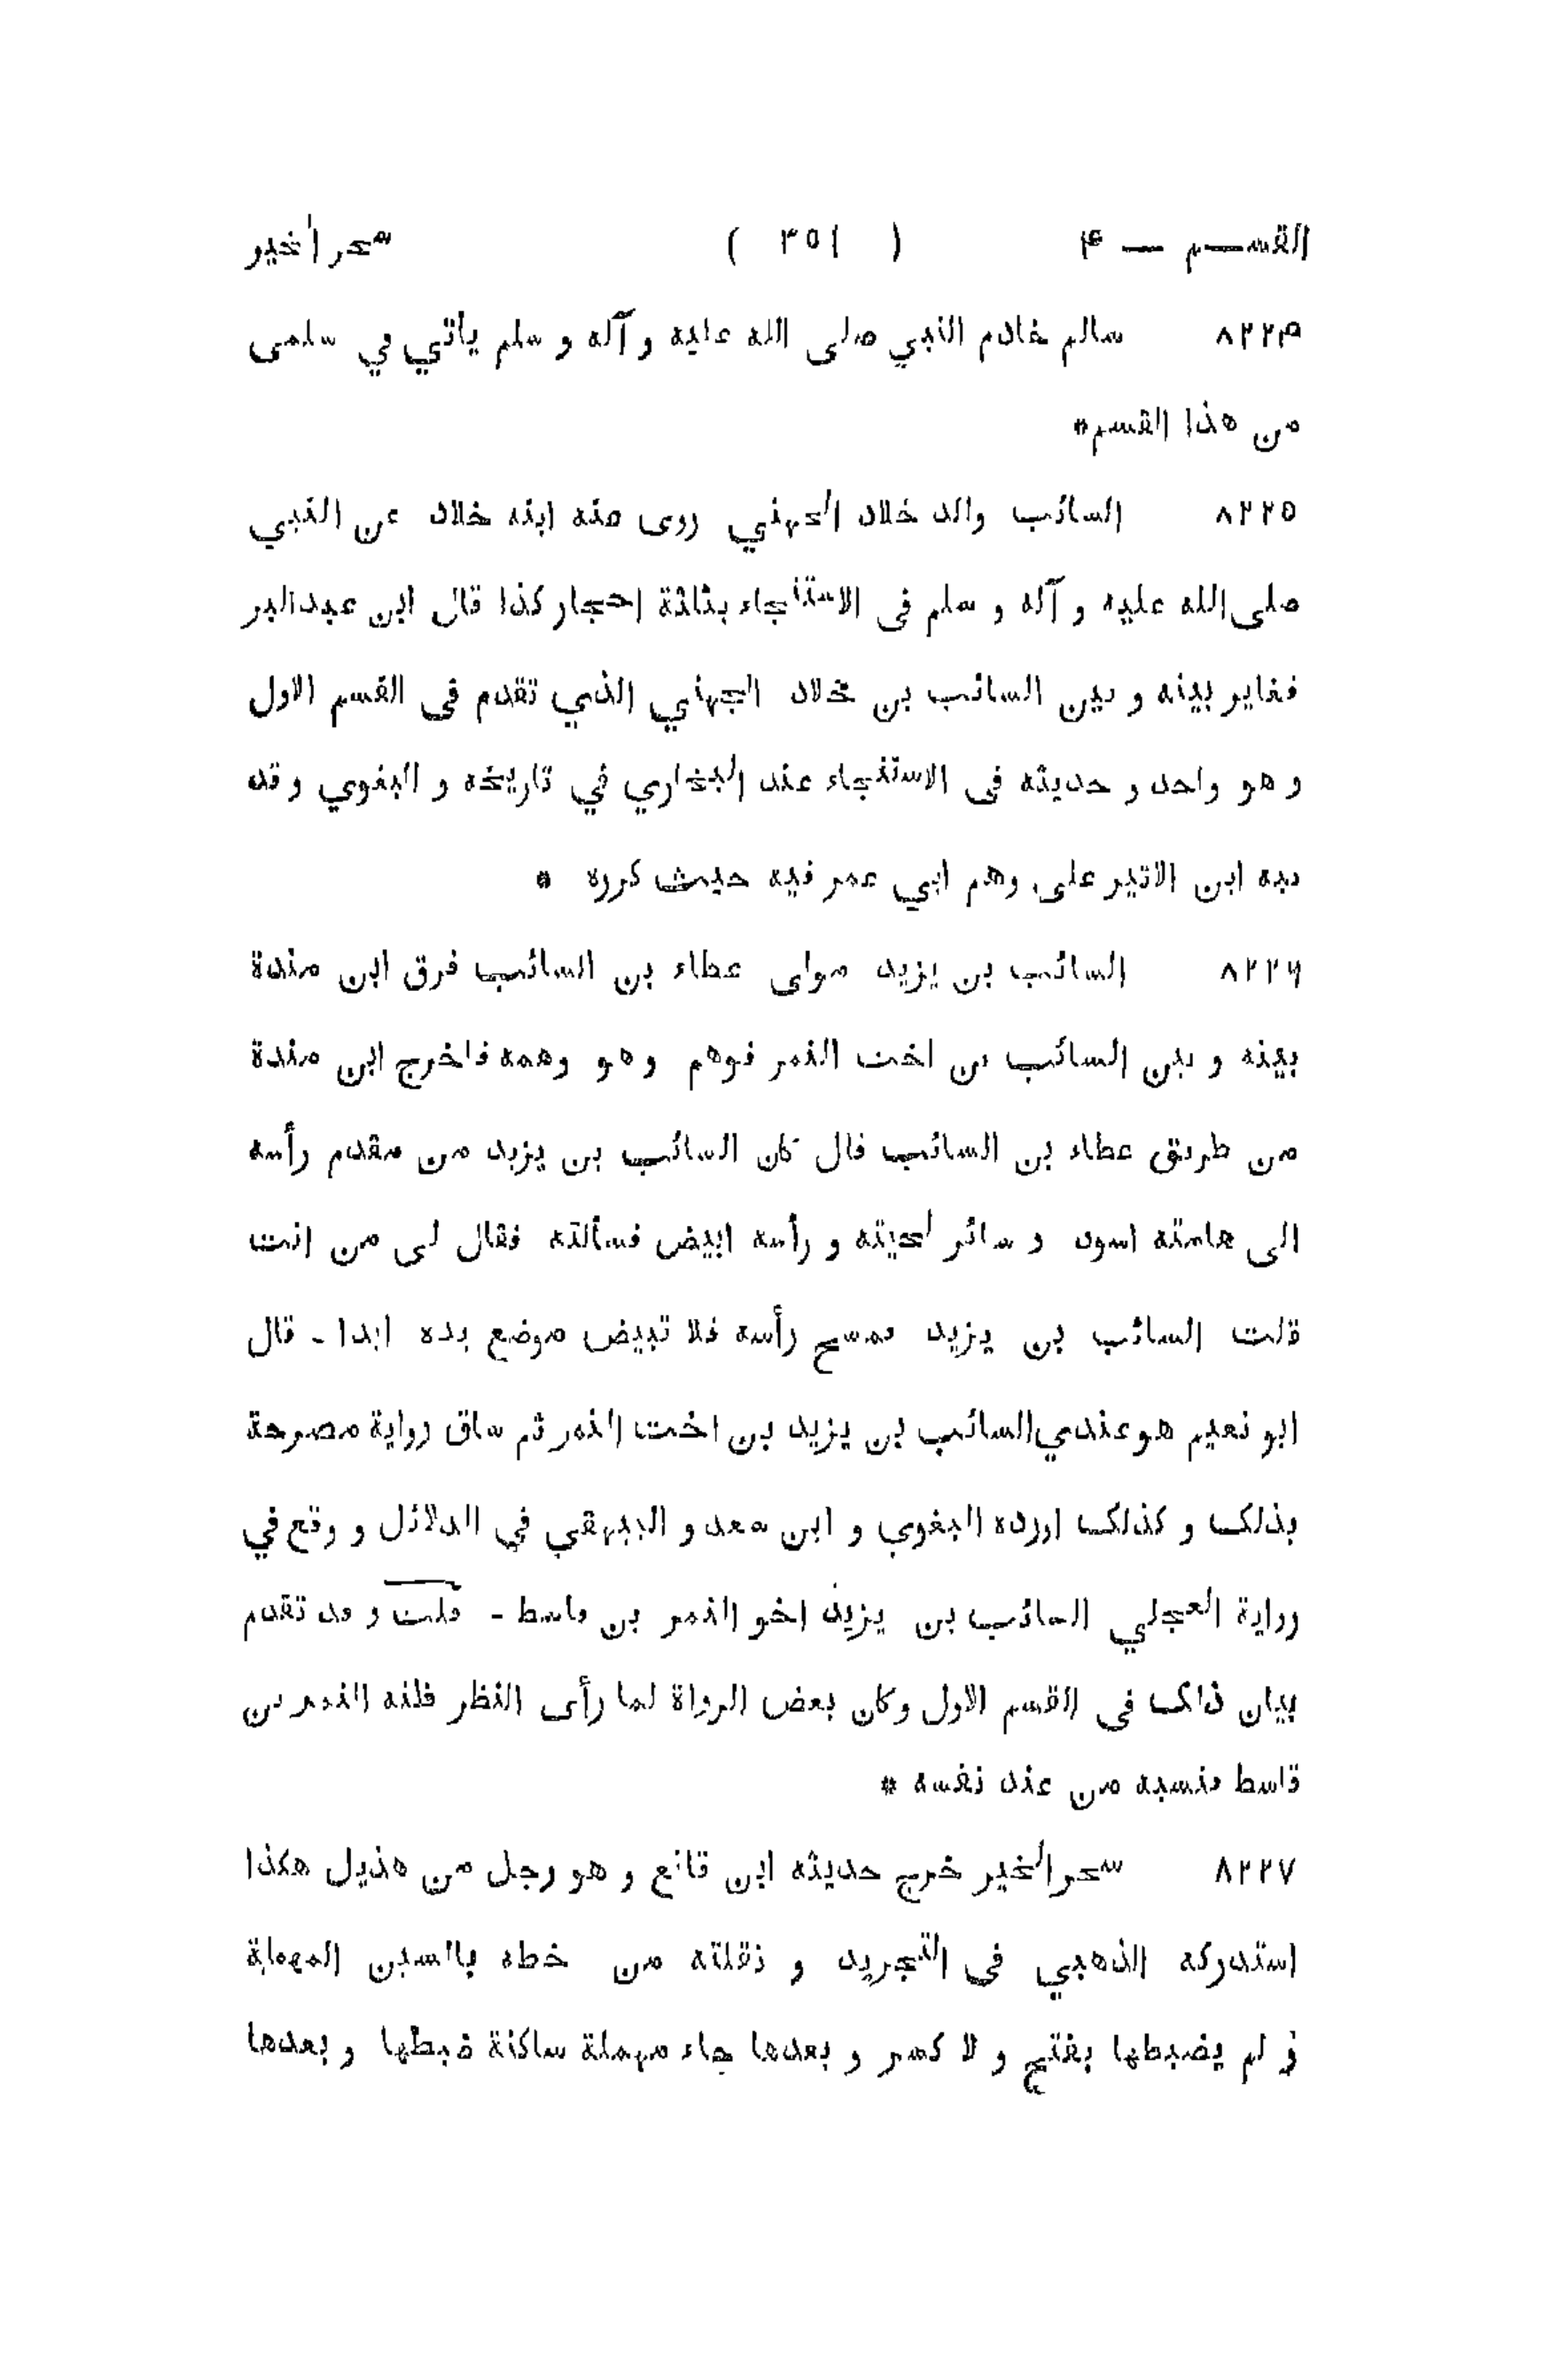 القسم — ۴ ( ۳۵۱ ) سحر الخير
۸۲۲۴ سالم خادم النبي صلى الله عليه و آله و سلم يأتي في سلمى
من هذا القسم*
۸۲۲۵ السائب والد خلاد الجهني روى عنه ابنه خلاد عن النبي
صلى الله عليه و آله و سلم فى الاستنجاء بثلاثة احجار كذا قال ابن عبد البر
فغاير بينه و بين السائب بن خلاد الجهني الذي تقدم فى القسم الاول
و هو واحد و حديثه فى الاستنجاء عند البخاري في تاريخه و البغوي و قد
نبه ابن الاثير على وهم ابي عمر فيه حيث كرره *
۸۲۲۶ السائب بن يزيد مولى عطاء بن السائب فرق ابن مندة
بينه و بين السائب بن اخت النمر فوهم و هو وهمه فاخرج ابن مندة
من طريق عطاء بن السائب قال كان السائب بن يزيد من مقدم رأسه
الى هامته اسود و سائر لحيته و رأسه ابيض فسألته فقال لى من انت
قلت السائب بن يزيد فمسح رأسه فلا تبيض موضع يده ابدا - قال
ابو نعيم هو عندي السائب بن يزيد بن اخت النمر ثم ساق رواية مصرحة
بذلك و كذلك اورده البغوي و ابن سعد و البيهقي في الدلائل و وقع في
رواية العجلي السائب بن يزيد اخو النمر بن قاسط - قلت و قد تقدم
بيان ذلك فى القسم الاول وكان بعض الرواة لما رأى النظر فلنه النمر بن
قاسط فنسبه من عند نفسه *
۸۲۲۷ سحر الخير خرج حديثه ابن قانع و هو رجل من هذيل هكذا
استدركه الذهبي فى التجريد و نقلته من خطه بالسين المهملة
و لم يضبطها بفتح و لا كسر و بعدها حاء مهملة ساكنة ضبطها و بعدها